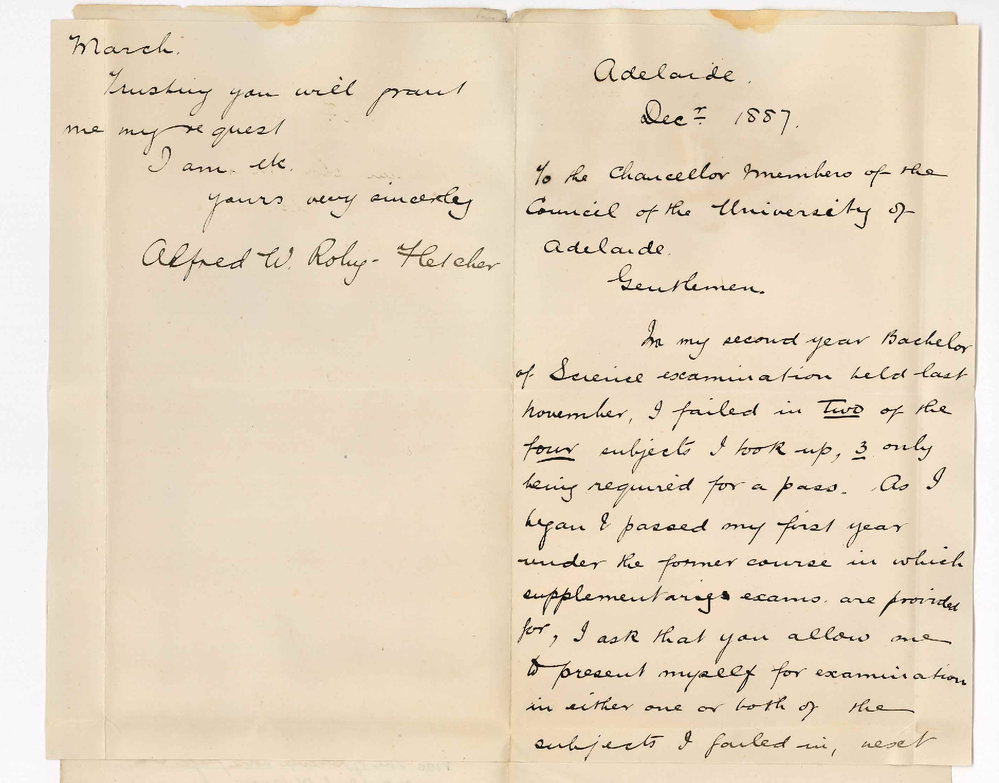 Adelaide.
Decr 1887.
To the Chancellor & members of the
Council of the University of
Adelaide.
Gentlemen.
In my second year Bachelor
of Science examination held last
November, I failed in Two of the
four subjects I took up, 3 only
being required for a pass. As I
began & passed my first year
under the former course in which
supplementary exams. are provided
for, I ask that you allow me
to present myself for examination
in either one or both of the
subjects I failed in, next
March.
Trusting you will grant
me my request
I am. etc.
yours very sincerely
Alfred W. Roby-Fletcher